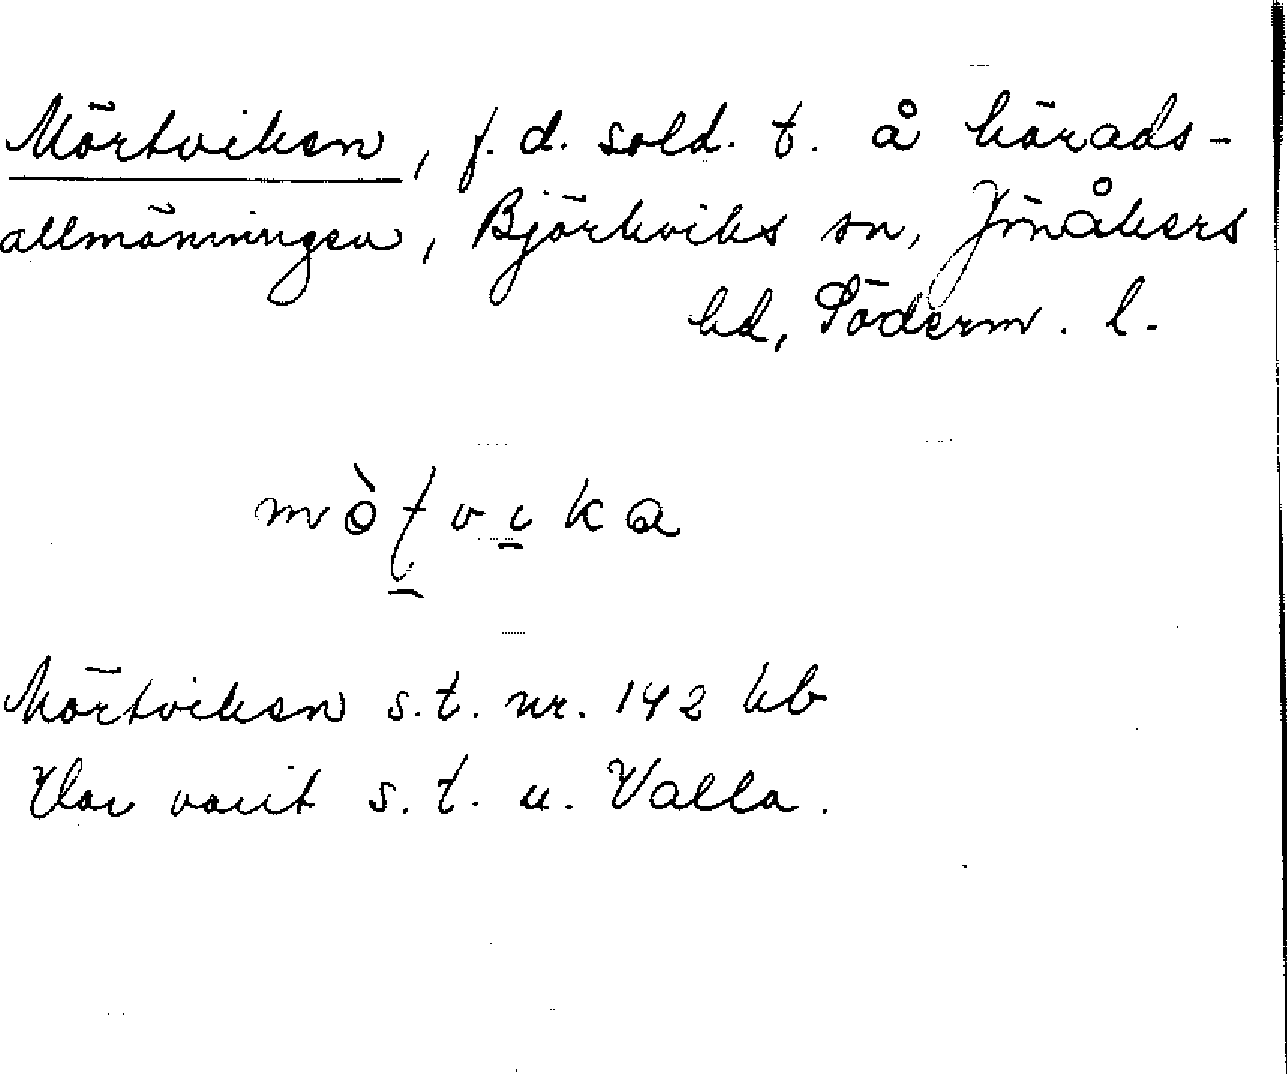 Mörtviken, f. d. sold. t. å härads-
allmänningen, Björkviks sn, Jönåkers
hd, Söderm. l.
Mörtviken s.t. nr. 142 kb
Har varit s. t. u. Valla.